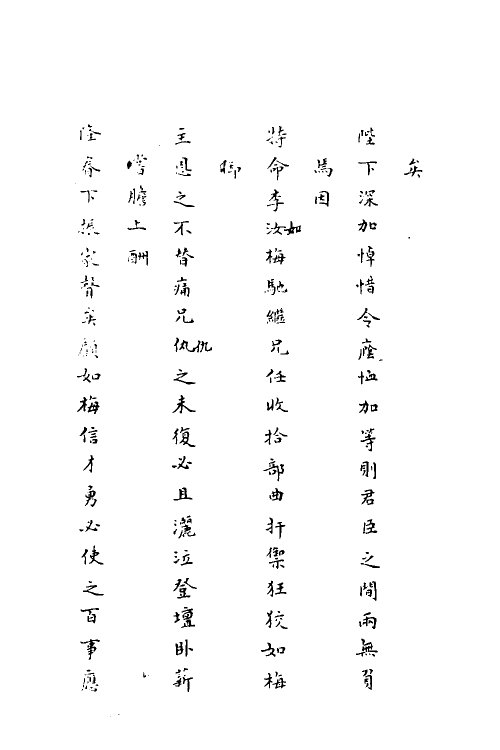 矣
陛下深加悼惜令蔭恤加等則君臣之間兩無負
焉因
特命李汝如梅馳繼兄任收拾部曲扞禦狂狡如梅
聊
主恩之不替痛兄仇仇之未復必且灑泣登壇卧薪
嘗膽上酬
隆眷下振家聲矣顧如梅信才勇必使之百事應